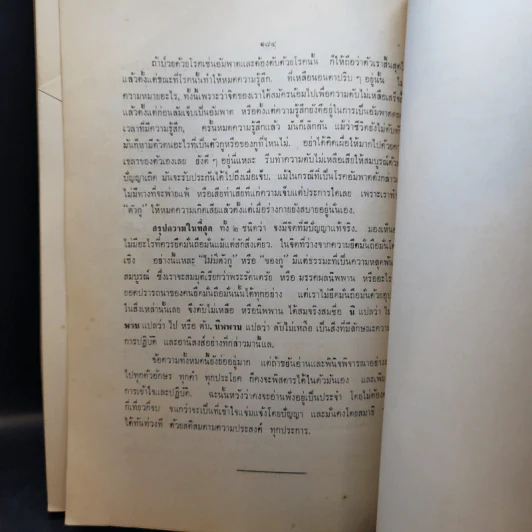 ๑๘๔
ถ้าป่วยด้วยโรคเช่นอัมพาตและต้องดับด้วยโรคนั้น ก็ให้ถือว่าตัวเราสิ้นสุด
แล้วตั้งแต่ขณะที่โรคนั้นทำให้หมดความรู้สึก. ที่เหลือนอนตาปริบ ๆ อยู่นั้น
ความหมายอะไร, ทั้งนี้เพราะว่าจิตของเราได้สมัครน้อมไปเพื่อความดับไม่เหลือเสร็
แล้วตั้งแต่ก่อนล้มเจ็บเป็นอัมพาต หรือตั้งแต่ความรู้สึกยังดีอยู่ในการเป็นอัมพาต
เวลาที่มีความรู้สึก, ครั้นหมดความรู้สึกแล้ว มันก็เลิกกัน แม้ว่าชีวิตยังไม่ดับ
มันก็หามีตัวตนอะไรที่เป็นตัวกูหรือของกูที่ไหนไม่. อย่าได้คิดเผื่อให้มากไปด้วย
เขลาของตัวเองเลย ยังดี ๆ อยู่นี่แหละ รีบทำความดับไม่เหลือเสียให้สมบูรณ์ด้ว
ปัญญาเถิด มันจะรับประกันได้ไปถึงเมื่อเจ็บ. แม้ในกรณีที่เป็นโรคอัมพาตดังกล่าว
ไม่มีทางที่จะพ่ายแพ้ หรือเสียท่าเสียทีแก่ความเจ็บแต่ประการใดเลย เพราะเราทำ
“ตัวกู” ให้หมดความเกิดเสียแล้วตั้งแต่เมื่อร่างกายยังสบายอยู่นั่นเอง.
สรุปความในที่สุด ทั้ง ๒ ชนิดว่า จงมีจิตที่มีปัญญาแท้จริง. มองเห็น
ไม่มีอะไรที่ควรยึดมั่นถือมั่นแม้แต่สักสิ่งเดียว. ในจิตที่ว่างจากความยึดมั่นถือมั่น
เชิง อย่างนี้แหละ “ไม่มีตัวกู” หรือ “ของกู” มีแต่ธรรมะที่เป็นความหลุดพ้น
สมบูรณ์ ซึ่งเราจะสมมติเรียกว่าพระรัตนตรัย หรือ มรรคผลนิพพาน หรืออะไร
ยอดปรารถนาของคนยึดมั่นถือมั่นนั้นได้ทุกอย่าง แต่เราไม่ยึดมั่นถือมั่นด้วย
ในสิ่งเหล่านั้นเลย จึงดับไม่เหลือ หรือนิพพาน ได้สมจริงสมชื่อ นิ แปลว่า
พาน แปลว่า ไป หรือ ดับ. นิพพาน แปลว่า ดับไม่เหลือ เป็นสิ่งที่มีลักษณะควา
การปฏิบัติ และอานิสงส์อย่างที่กล่าวมานี้แล.
ข้อความทั้งหมดนี้ยังย่ออยู่มาก แต่ถ้าขยันอ่านและพินิจพิจารณาอย่าง
ไปทุกตัวอักษร ทุกคำ ทุกประโยค ก็คงจะพิสดารได้ในตัวมันเอง และเพีย
การเข้าใจและปฏิบัติ. ฉะนั้นหวังว่าคงจะอ่านฟังอยู่เป็นประจำ โดยไม่ต้อง
กี่เที่ยวกี่จบ จนกว่าจะเป็นที่เข้าใจแจ่มแจ้งโดยปัญญา และมั่นคงโดยสมาธิ
ได้ทันท่วงที ด้วยสติสมตามความประสงค์ ทุกประการ.